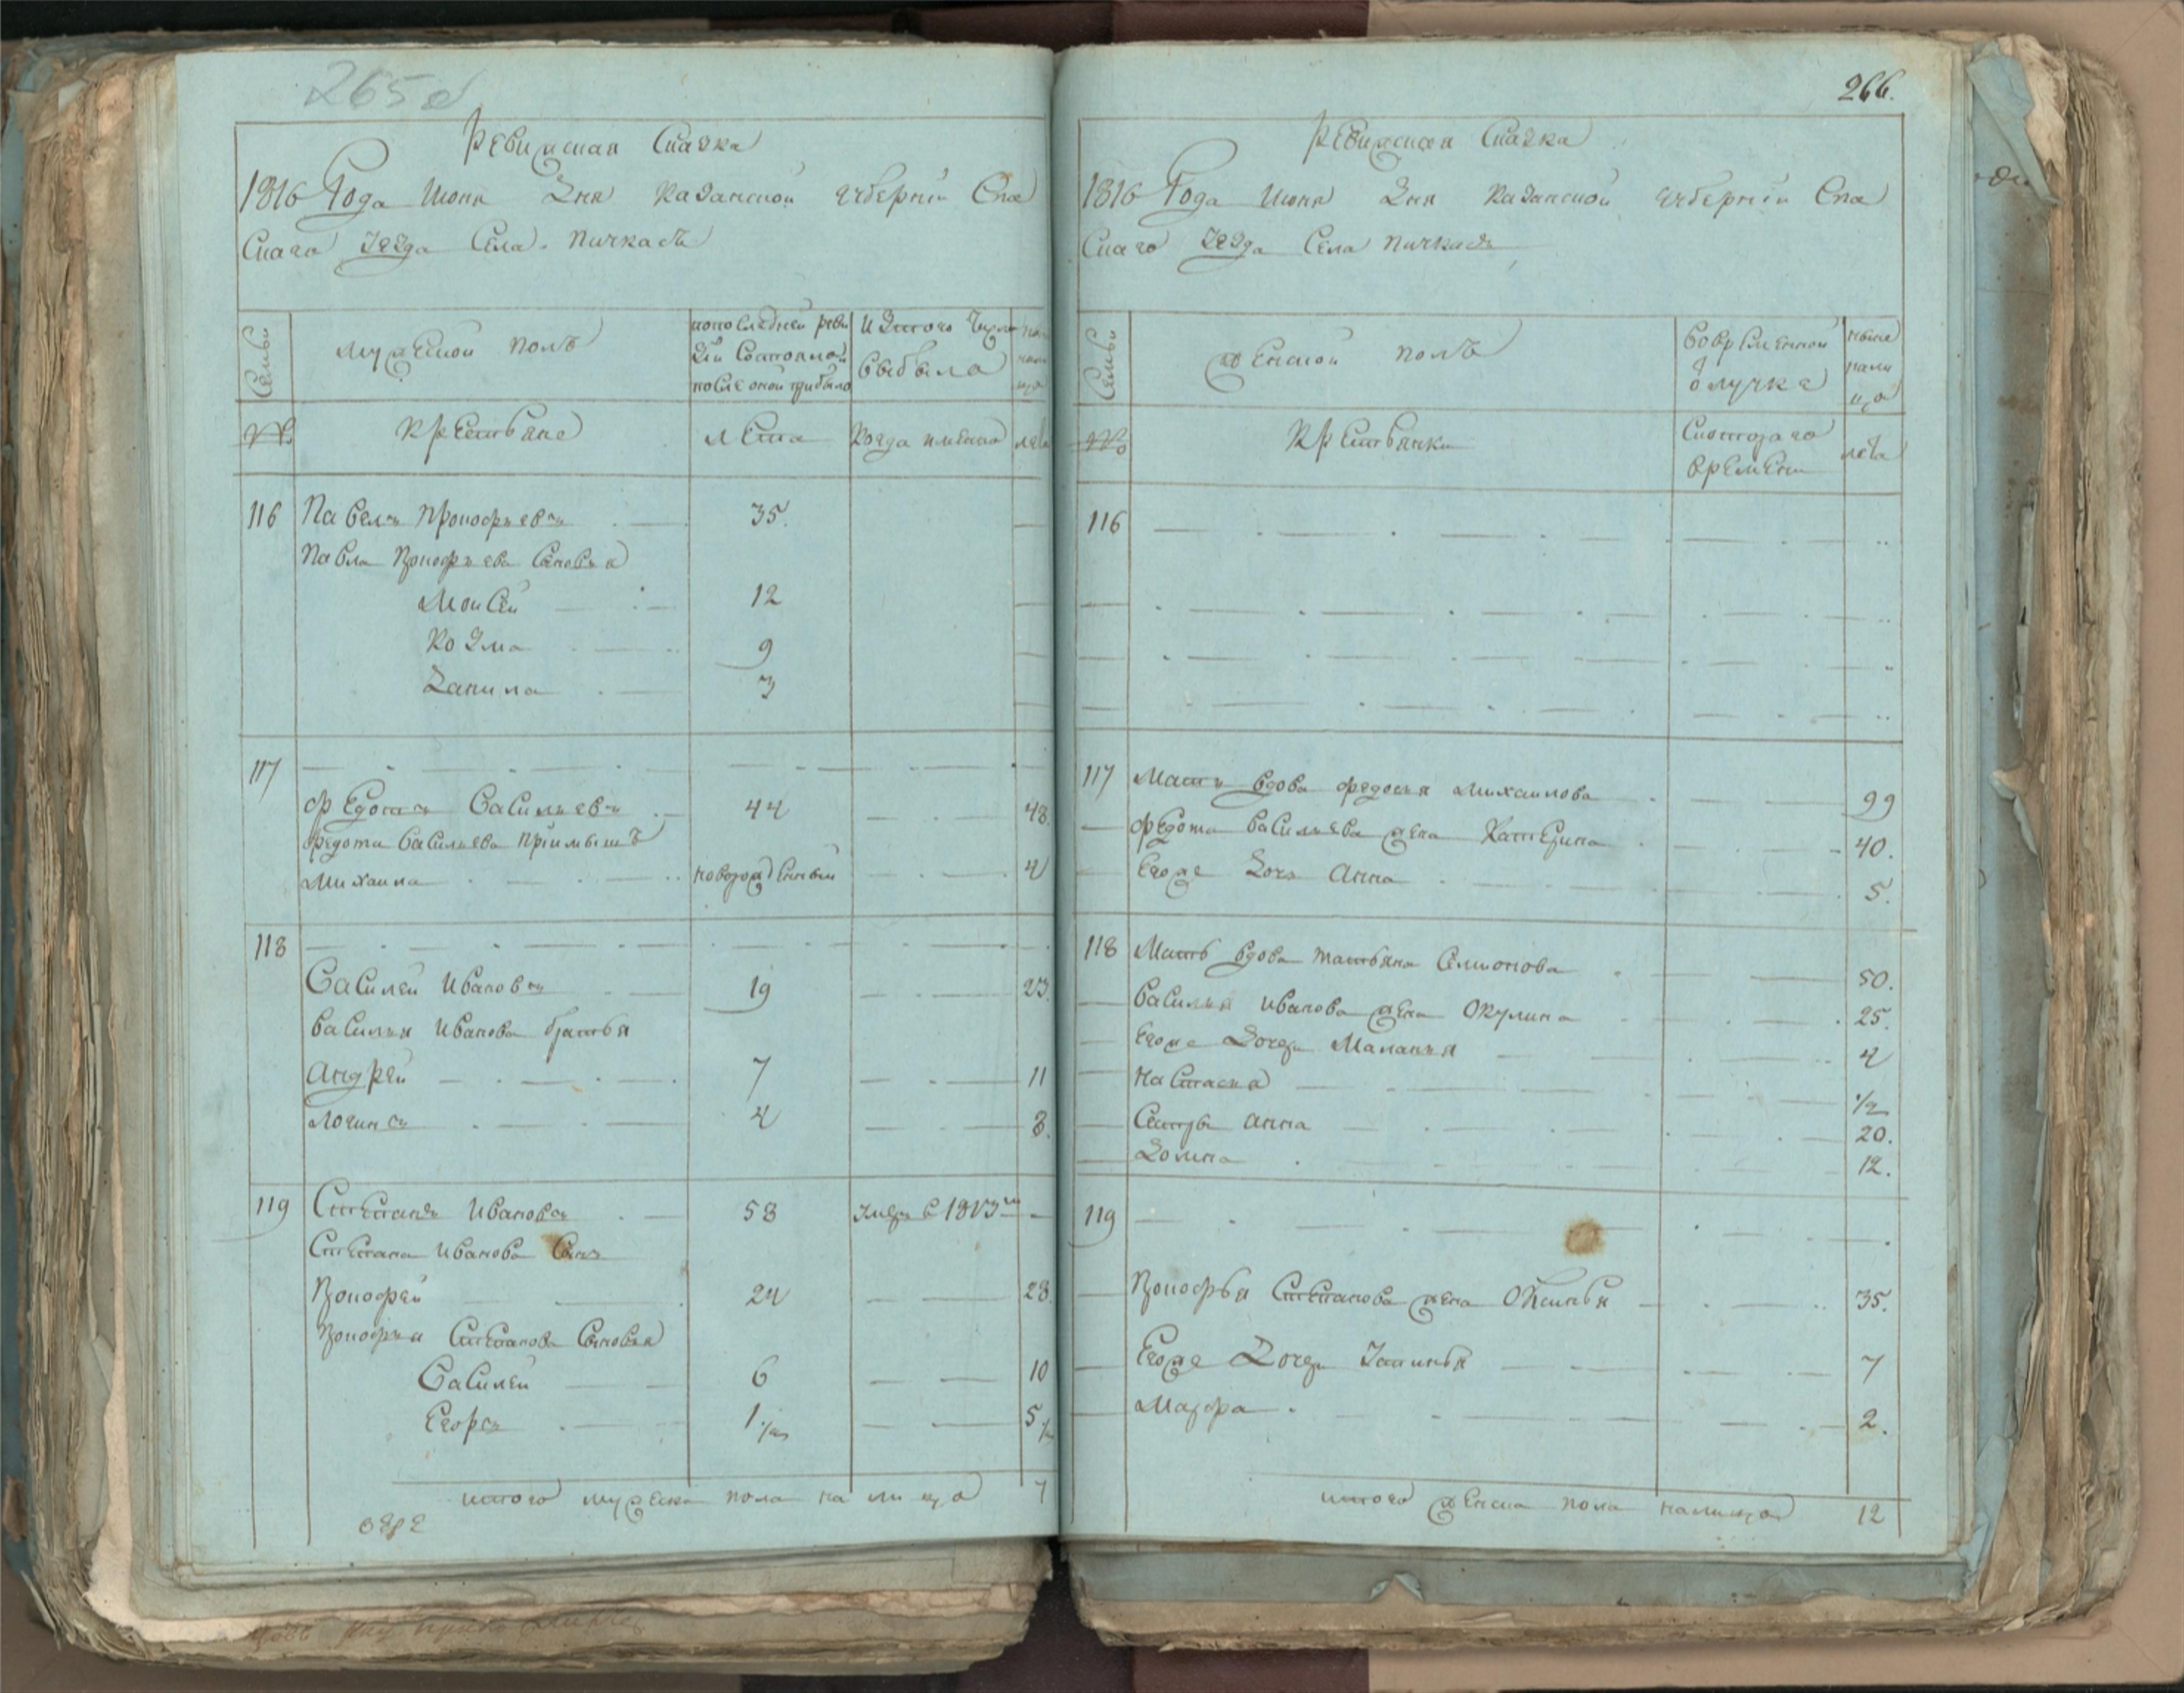 265
Ревизская Сказка
1816 Года Июня Дня Казанской губернии Спа
Скаго уезда Села Пичкасъ
Семьи
Мужеской полъ
по последней реви
зіи Состояло и
после оной прибыло
Изтого Числа
выбыло
№
Крестьяне
Лета
Когда имянно
лета
116 Павелъ Прокофьевъ 35.
Павла Прокофьева Сыновья
Моисей 12
Козма 9
Данила 3
117
Федотъ Васильевъ 44 48.
Федота Васильева Приимышъ
Михаила новорожденный 4
118
Василей Ивановъ 19 23.
Василья Иванова братья
Андрей 7 11
Логинъ 4 8.
119 Степанъ Ивановъ 58 умре в 1813м
Степана Иванова Сынъ
Прокофей 24 28.
Прокофья Степанова Сыновья
Василей 6 10
Егоръ 1 5
итого мужеска пола на лицо 7
266.
Ревизская Сказка
1816 Года Июня Дня Казанской губерніи Спа
Скаго уезда Села Пичкасъ
Семьи
Женской полъ
Вовременной
отлучке
ныне
нали
цо
№
Крестьянки
Скотораго
времени
лета
116
117 Мать вдова Федосья Михаилова 99
Федота Васильева жена Катерина 40.
Егоже Дочь Анна 5.
118 Мать вдова Татьяна Семионова 50.
Василья Иванова жена Окулина 25.
Егоже Дочери Маланья 4
Настасья 1/2
Сестры Анна 20.
Домна 12.
119
Прокофья Степанова жена Оксинья 35.
Егоже Дочери Устинья 7
Марфа 2.
итого женска пола налицо 12